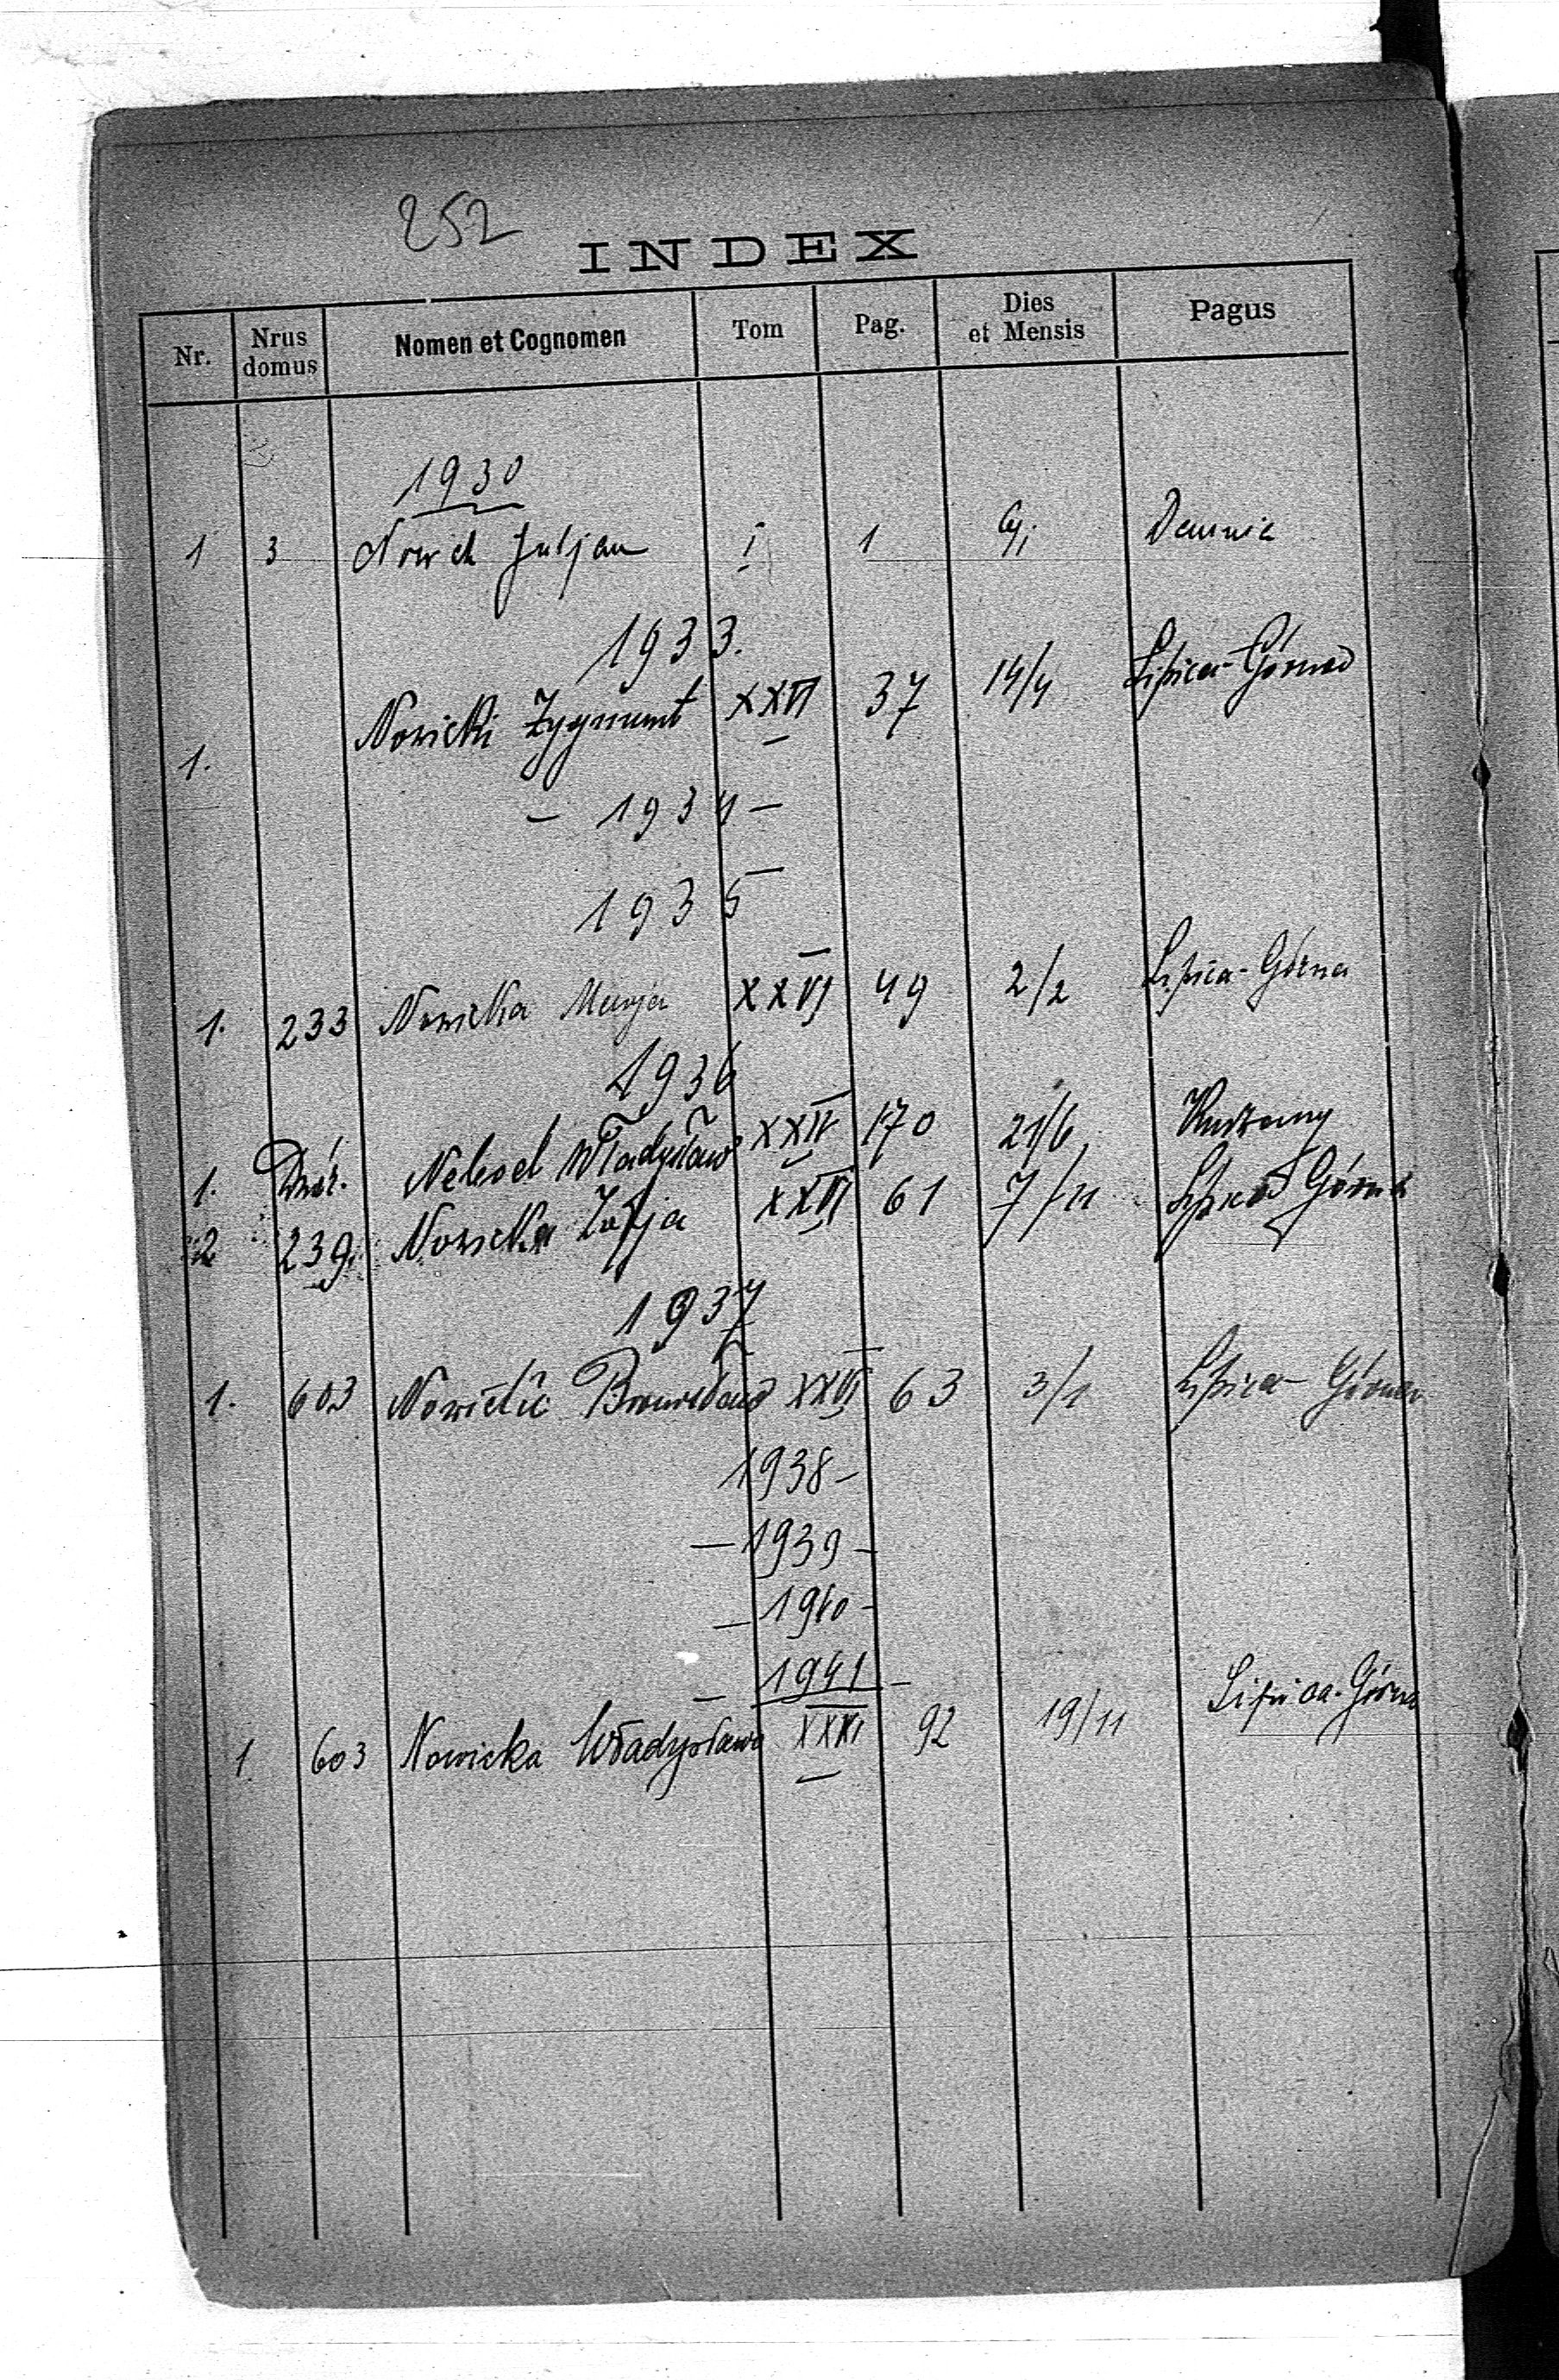 252
INDEX
Nr. Nrus domus Nomen et Cognomen Tom Pag. Dies et Mensis Pagus
1930
1 3 Juljan I 1
1933.
1. Nowicki Zygmunt XXVI 37 14/4 Lipica-Górna
- 1934 -
1935
1. 233 Nowicka Marja XXVI 49 2/2 Lipica-Górna
1936
1. Dwór. Władysław 170 21/6
2 239. Nowicka Zofja XXVI 61 7/11 Lipica Górna
1937
1. 603 Nowicki Bronisław XXVI 63 3/1 Lipica-Górna
1938-
-1939-
-1940-
- 1941 -
1. 603 Nowicka Władysława 92 19/11 Lipica-Górna